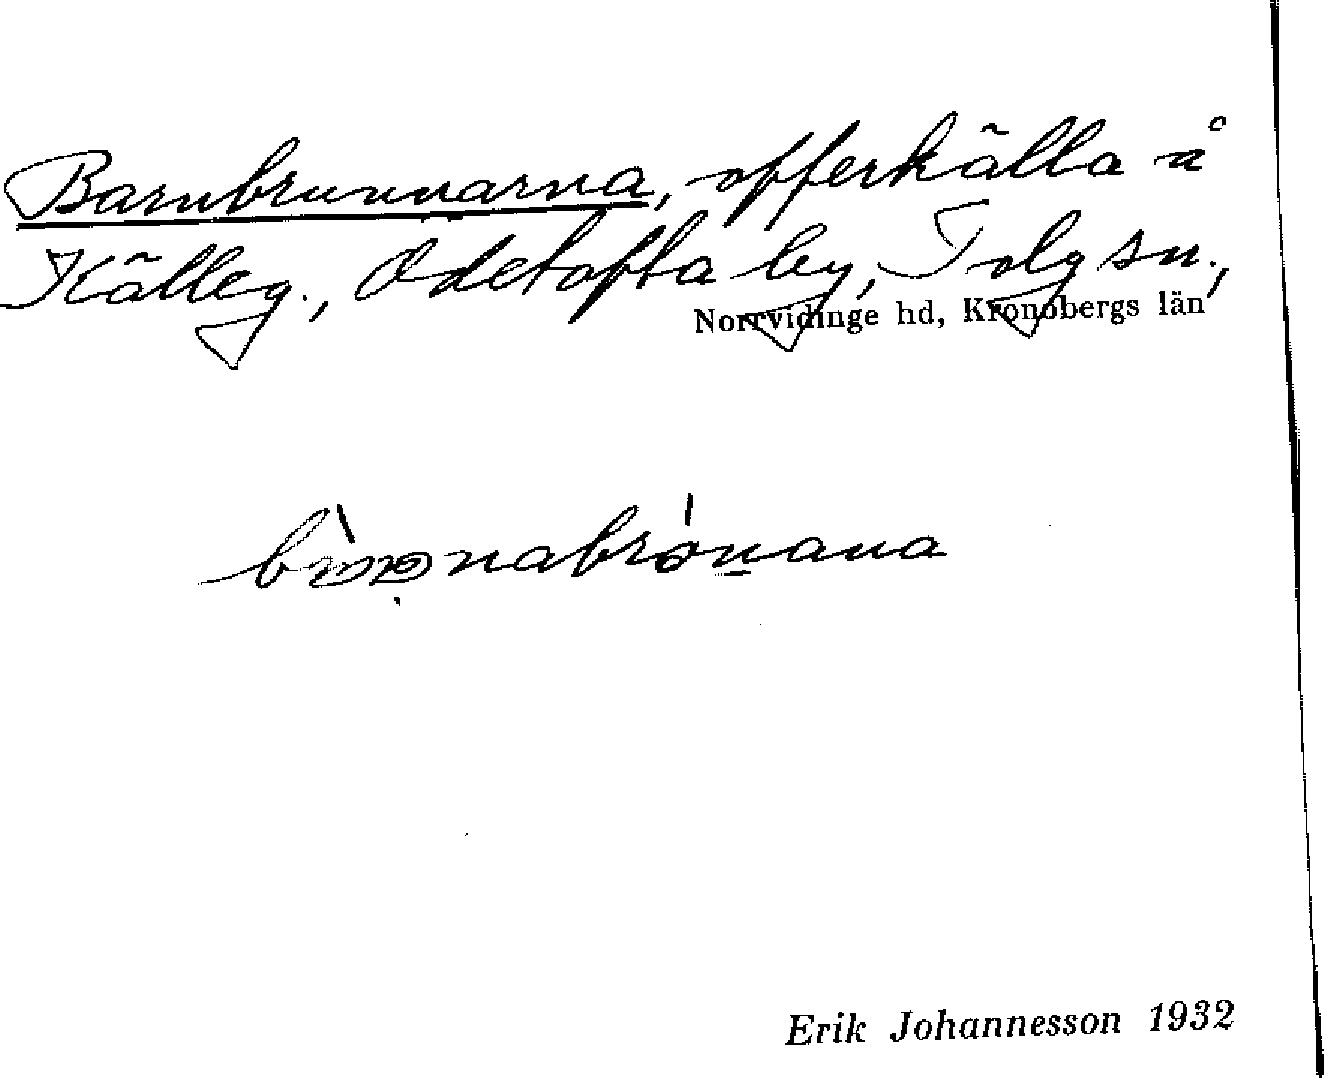 Barnbrunnarna, offerkälla å
Källeg., Odetofta by, Tolg sn.,
Norrvidinge hd, Kronobergs län
Erik Johannesson 1932